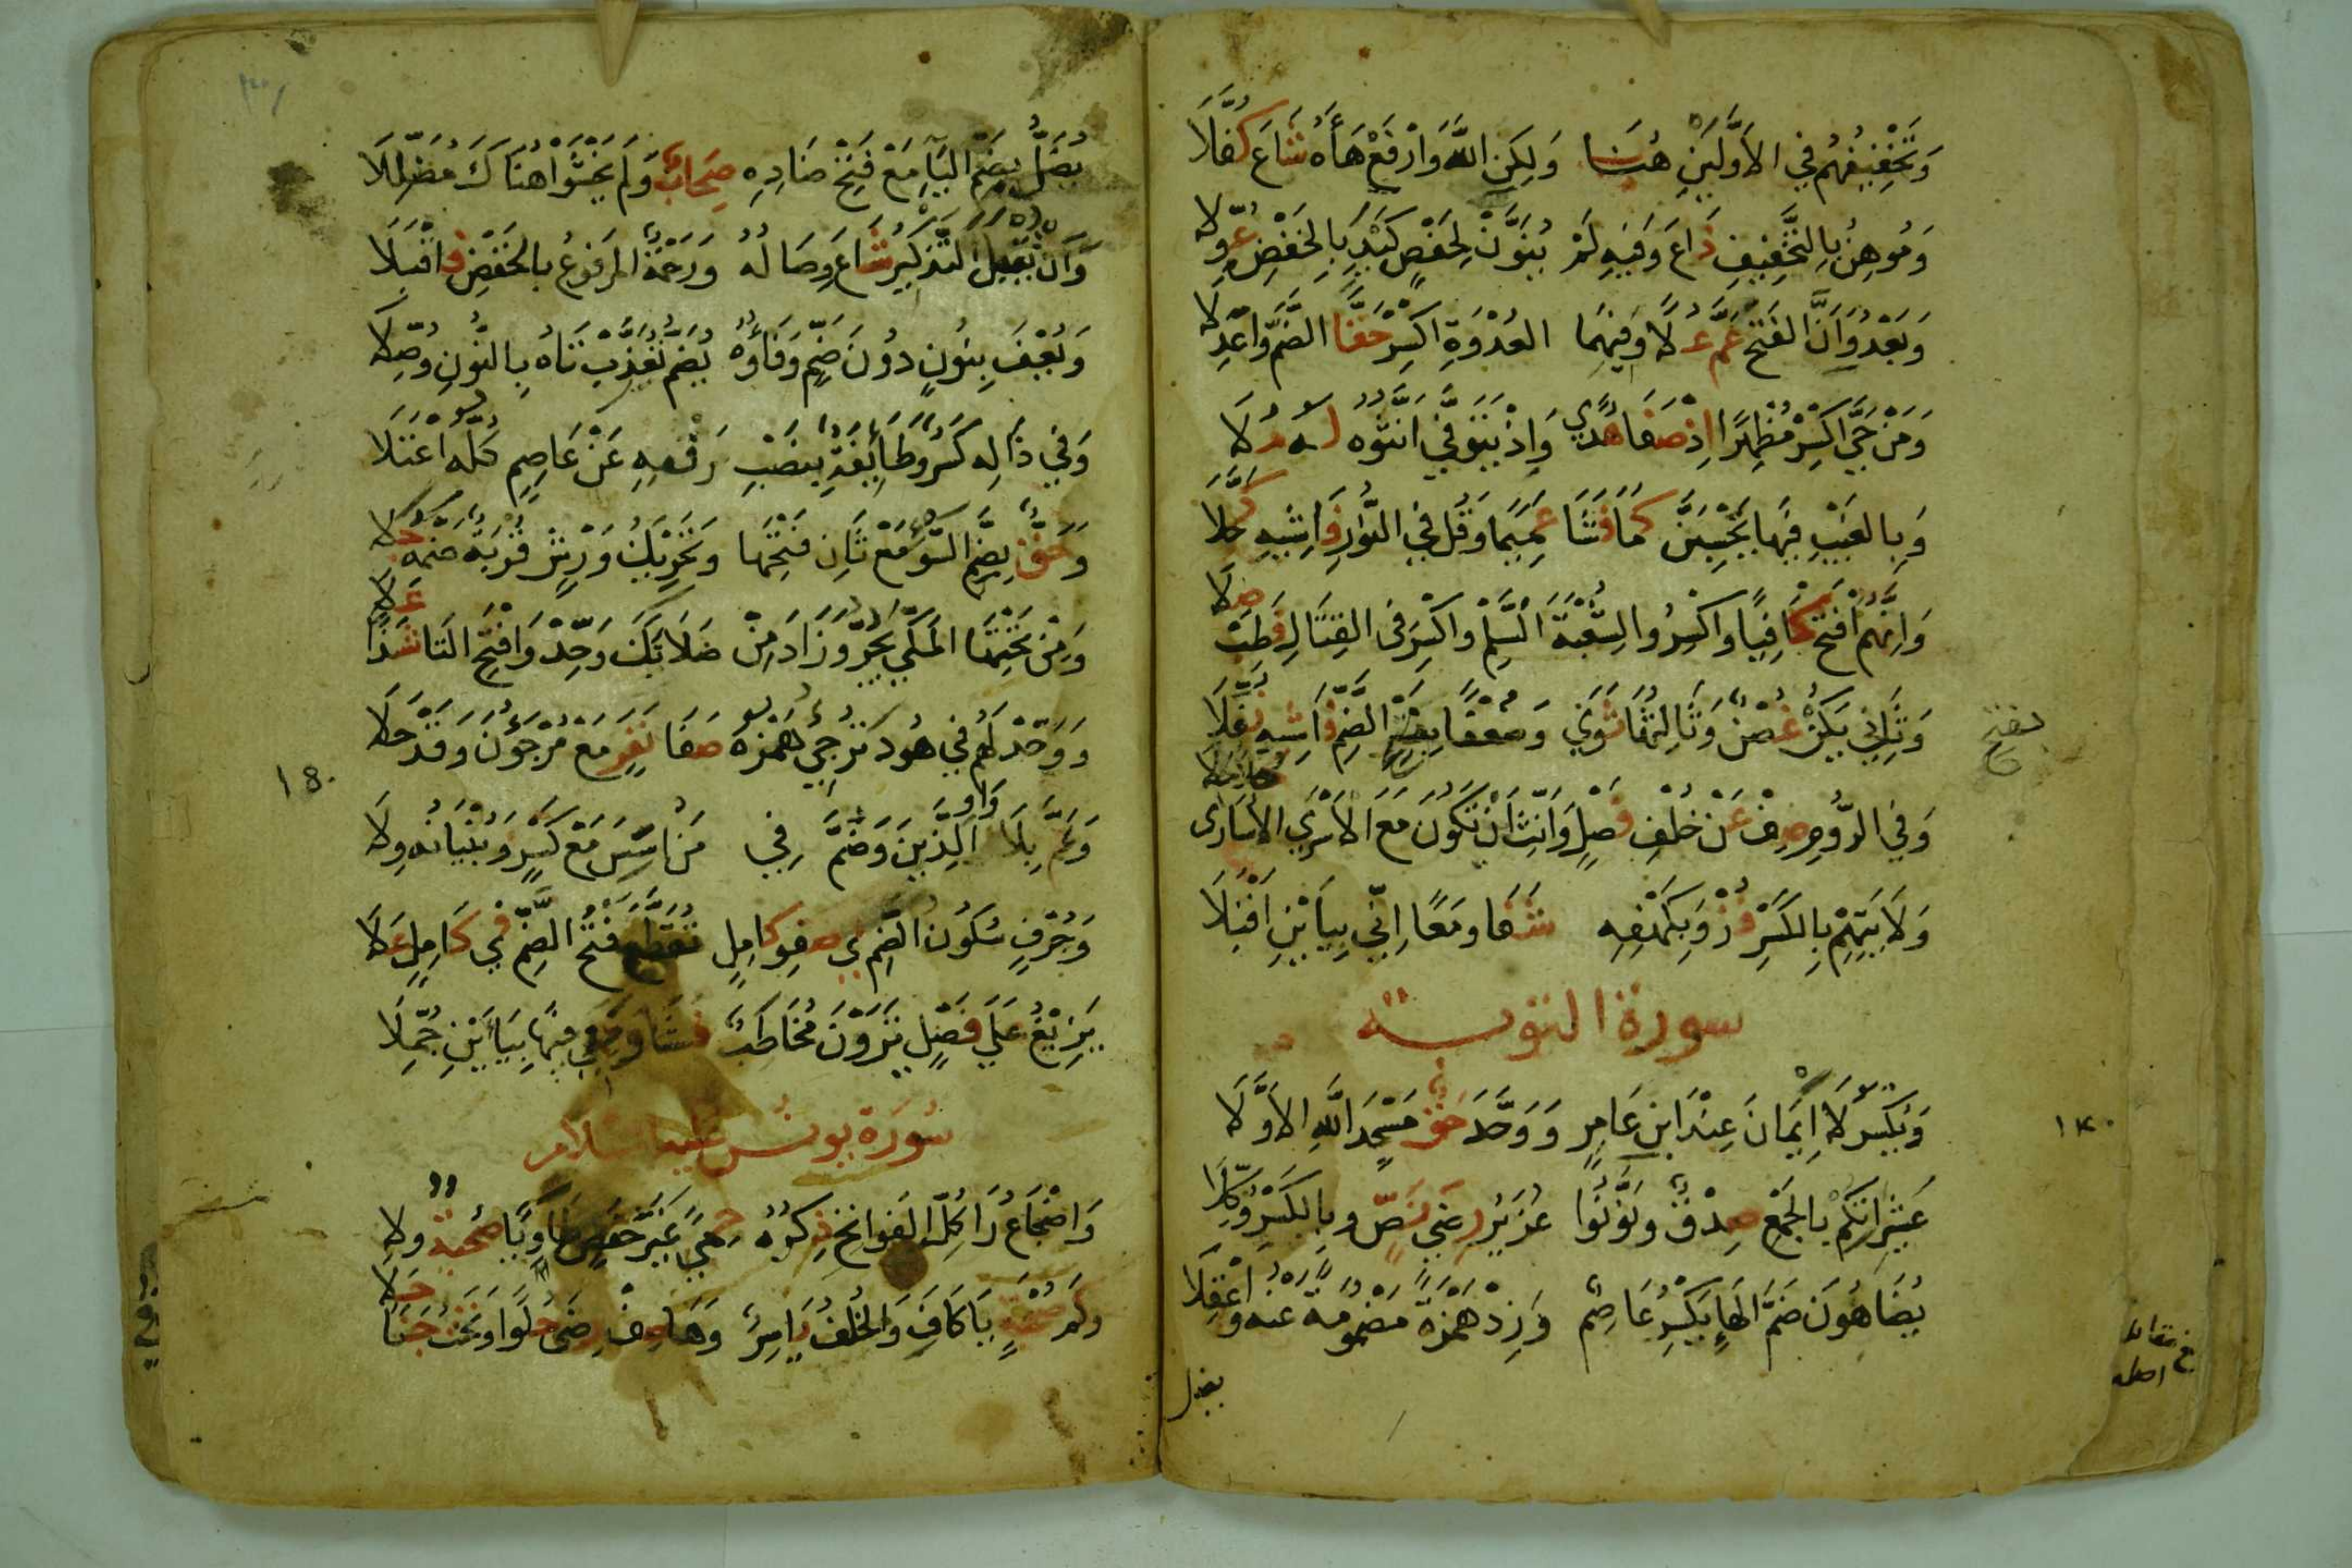 وَتَخْفِيفُهُمْ فِي الأَوَّلَيْنِ هُنَا وَلَكِنِ اللهُ وَارْفَعْ هَاءَهُ شَاعَ كُفَّلَا
وَمُوهِنُ بِالتَّخْفِيفِ ذَاعَ وَفِيهِ لَمْ يُنَوَّنْ لِحَفْصٍ كَيْدِ بِالخَفْضِ عُوِّلَا
وَبَعْدُ وَاَنَّ الفَتْحُ عَمَّ عُلًا وَفِيهِمَا العُدْوَةِ اكْسِرْ حَقًّا الضَّمَّ وَاعْدِلَا
وَمَنْ حَيَّ اكْسِرْ مُظْهِرًا اِذْ صَفَا هُدًي وَاِذْ يَتَوَفَّي اَنِّثُوهُ لَهُ مُلَا
وَبِالغَيْبِ فِيهَا يَحْسِبَنَّ كَمَا فَشَا عَمِيمًا وَقُلْ فِي النُّورِ فَاشِيهِ كَحَّلَا
وَاِنَّهُمُ افْتَحْ كَافِيًا وَاكْسِرُوا لِشُعْبَةَ السَّلْمِ وَاكْسِرْ فِي القِتَالِ فَطِبْ صِلَا
وَثَانِي يَكُنْ غُصْنٌ وَثَالِثُهَا ثَوَي وَضُعْفًا بِفَتْحِ الضَّمِّ فَاشِيهِ نُفِّلَا
بفتح
وَفِي الرُّومِ صِفْ عَنْ خُلْفِ فَصْلٍ وَاَنِّثْ اَنْ تَكُونَ مَعَ الأَسْرَي الأُسَارَى حُلًا حَلَا
وَلَايَتِهِمْ بِالكَسْرِ فُزْ وَبِكَهْفِهِ شَفَا وَمَعًا اِنِّي بِيَاءَيْنِ اَقْبَلَا
سورة التوبة
وَيُكْسَرُ لَا اِيمَانَ عِنْدَ ابْنِ عَامِرٍ وَوَحَّدَ حَقٌّ مَسْجِدَ اللهِ الأَوَّلَا
١٤٠
عَشِيرَاتُكُمْ بِالجَمْعِ صِدْقٌ وَنَوِّنُوا عُزَيْرٌ رِضَي نَصٍّ وَبِالكَسْرِ وُكِّلَا
يُضَاهُونَ ضَمَّ الهَاءِ يَكْسِرُ عَاصِمٌ وَزِدْ هَمْزَةً مَضْمُومَةً عَنْهُ وَاعْقِلَا
يضل
يُضَلُّ بِضَمِّ اليَاءِ مَعْ فَتْحِ ضَادِهِ صِحَابٌ وَلَمْ يَخْشَوْا هُنَاكَ مُضَلِّلَا
وَاَنْ تُقْبَلَ التَّذْكِيرُ شَاعَ وِصَالُهُ وَرَحْمَةٌ المَرْفُوعُ بِالخَفْضِ فَاقْبَلَا
وَيُعْفَ بِنُونٍ دُونَ ضَمٍّ وَفَاؤُهُ يُضَمُّ تُعَذَّبْ تَاهُ بِالنُّونِ وُصِّلَا
وَفِي ذَالِهِ كَسْرٌ وَطَائِفَةٌ بِنَصْبِ رَفْعِهِ عَنْ عَاصِمٍ كُلُّهُ اعْتَلَا
وَحَقٌّ بِضَمِّ السَّوْءِ مَعْ ثَانِ فَتْحِهَا وَتَحْرِيكُ وَرْشٍ قُرْبَةٌ ضَمُّهُ جَلَا
وَمِنْ تَحْتِهَا المَكِّي يَجُرُّ وَزَادَ مِنْ صَلَاتَكَ وَحِّدْ وَافْتَحِ التَّا شَذًا عَلَا
وَوَحِّدْ لَهُمْ فِي هُودَ تُرْجِئُ هَمْزُهُ صَفَا نَفَرٍ مَعْ مُرْجَؤُنَ وَقَدْ حَلَا
١٥٠
وَعَمَّ بِلَا وَاوِ الَّذِينَ وَضُمَّ فِي مَنْ اسَّسَ مَعْ كَسْرٍ وَبُنْيَانُهُ وِلَا
وَجُرْفٍ سُكُونُ الضَّمِّ فِي صَفْوِ كَامِلٍ تُقَطَّعَ فَتْحُ الضَّمِّ فِي كَامِلٍ عَلَا
يَزِيغُ عَلَي فَصْلٍ تَرَوْنَ مُخَاطَبٌ فَشَا وَمَعِي فِيهَا بِيَاءَيْنِ جُمِّلَا
سورة يونس عليه السلام
وَاضْجَاعُ رَا كُلِّ الفَوَاتِحِ ذِكْرُهُ حِمًي غَيْرَ حَفْصٍ طَا وَيَا صُحْبَةٌ وِلَا
وَكَمْ صُحْبَةٍ يَا كَافِ وَالخُلْفُ يَاسِرٌ وَهَا صِفْ رِضًى حُلْوًا وَتَحْتَ جَنًا حَلَا